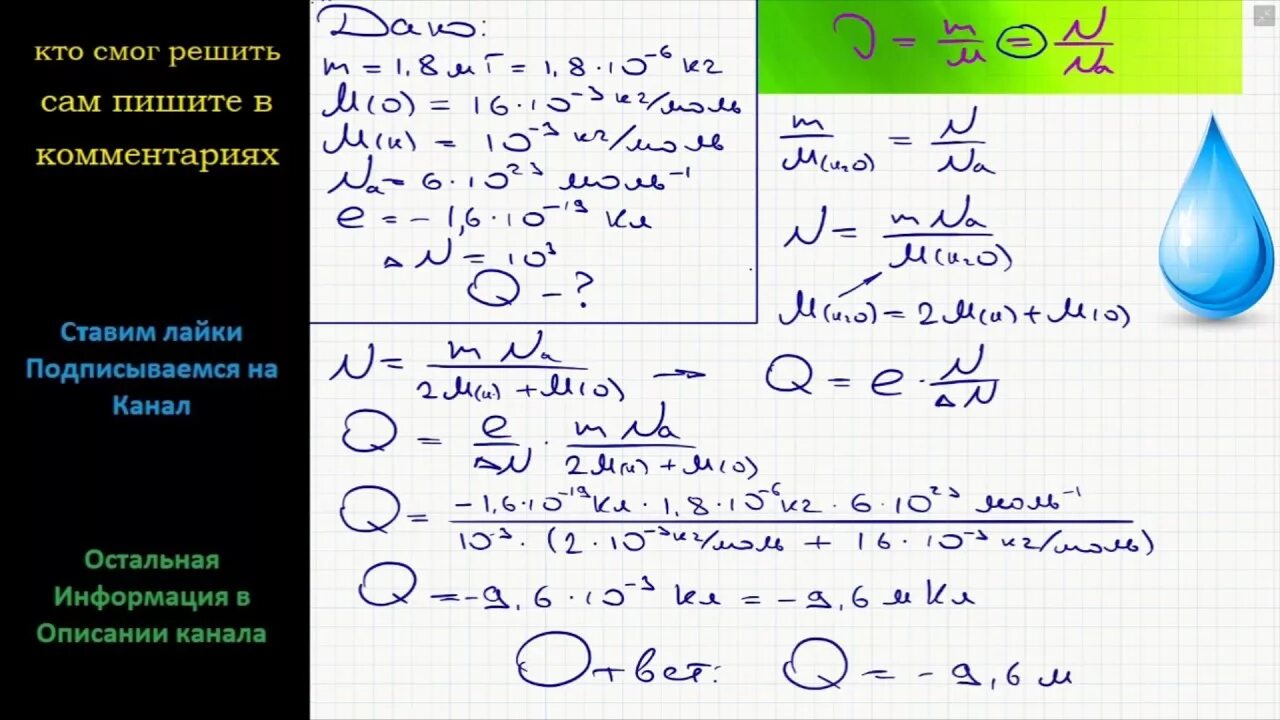 кто смог решить
сам пишите в
комментариях
Ставим лайки
Подписываемся на
Канал
Остальная
Информация в
Описании канала
Дано:
m = 1,8 мг = 1,8·10⁻⁶ кг
M(O) = 16·10⁻³ кг/моль
M(н) = 10⁻³ кг/моль
Nₐ = 6·10²³ моль⁻¹
e = -1,6·10⁻¹⁹ Кл
ΔN = 10³
Q - ?
ν = m/M = N/Nₐ
m/M(н₂O) = N/Nₐ
N = mNₐ/M(н₂O)
M(н₂O) = 2M(н) + M(O)
N = mNₐ/(2M(н) + M(O)) →
Q = e · N/ΔN
Q = e/ΔN · mNₐ/(2M(н) + M(O))
Q = -1,6·10⁻¹⁹Кл · 1,8·10⁻⁶кг · 6·10²³ моль⁻¹/10⁻³·(2·10⁻³кг/моль + 16·10⁻³кг/моль)
Q = -9,6·10⁻³ Кл = -9,6 мКл
Ответ: Q = -9,6 м